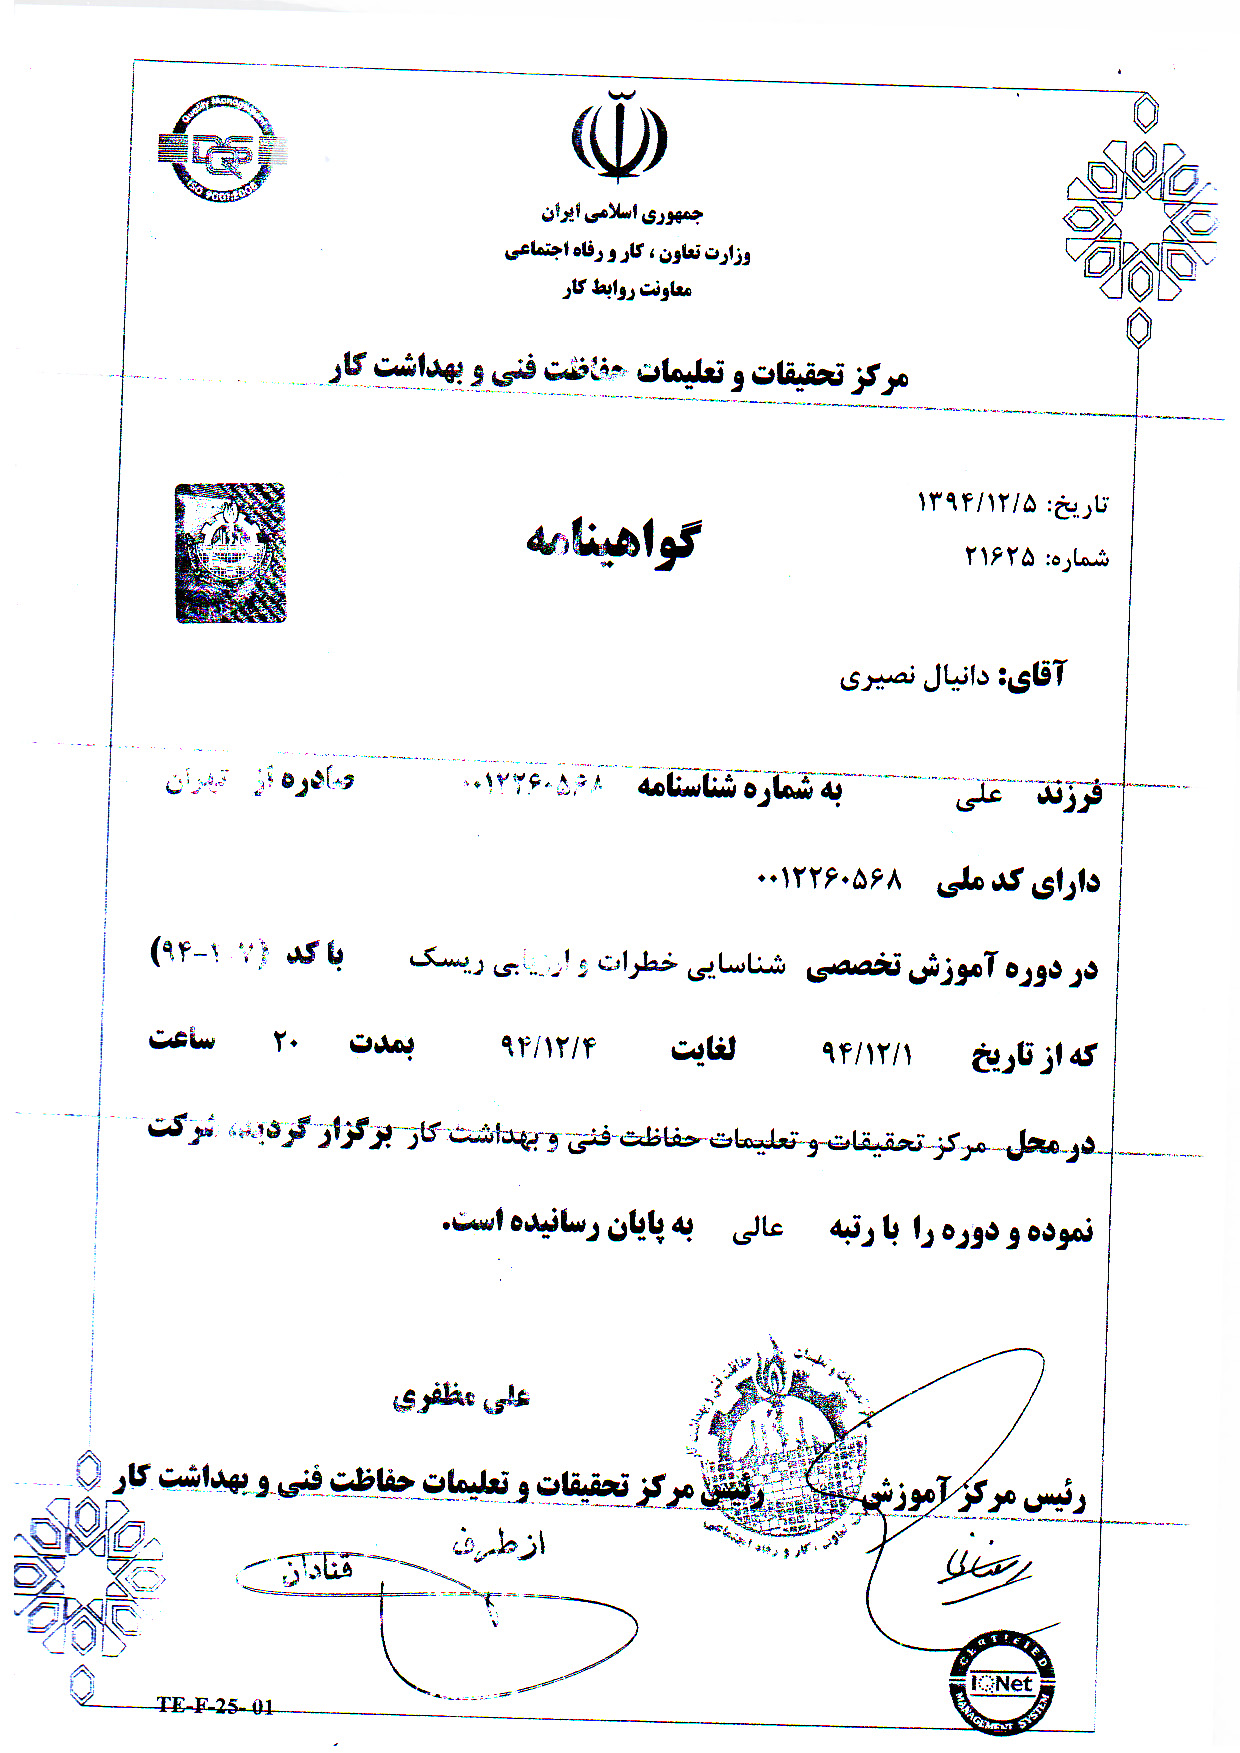 Quality Management
DQS
ISO 9001:2008
جمهوری اسلامی ایران
وزارت تعاون ، کار و رفاه اجتماعی
معاونت روابط کار
مرکز تحقیقات و تعلیمات حفاظت فنی و بهداشت کار
تاریخ: ۱۳۹۴/۱۲/۵
شماره: ۲۱۶۲۵
گواهینامه
آقای: دانیال نصیری
فرزند علی به شماره شناسنامه ۰۰۱۲۲۶۰۵۶۸ صادره از تهران
دارای کد ملی ۰۰۱۲۲۶۰۵۶۸
در دوره آموزش تخصصی شناسایی خطرات و ارزیابی ریسک با کد
که از تاریخ ۹۴/۱۲/۱ لغایت ۹۴/۱۲/۴ بمدت ۲۰ ساعت
در محل مرکز تحقیقات و تعلیمات حفاظت فنی و بهداشت کار برگزار گردید، شرکت
نموده و دوره را با رتبه عالی به پایان رسانیده است.
علی مظفری
رئیس مرکز آموزش
رئیس مرکز تحقیقات و تعلیمات حفاظت فنی و بهداشت کار
از طرف
قنادان
CERTIFIED
IQNet
MANAGEMENT SYSTEM
TE-F-25- 01